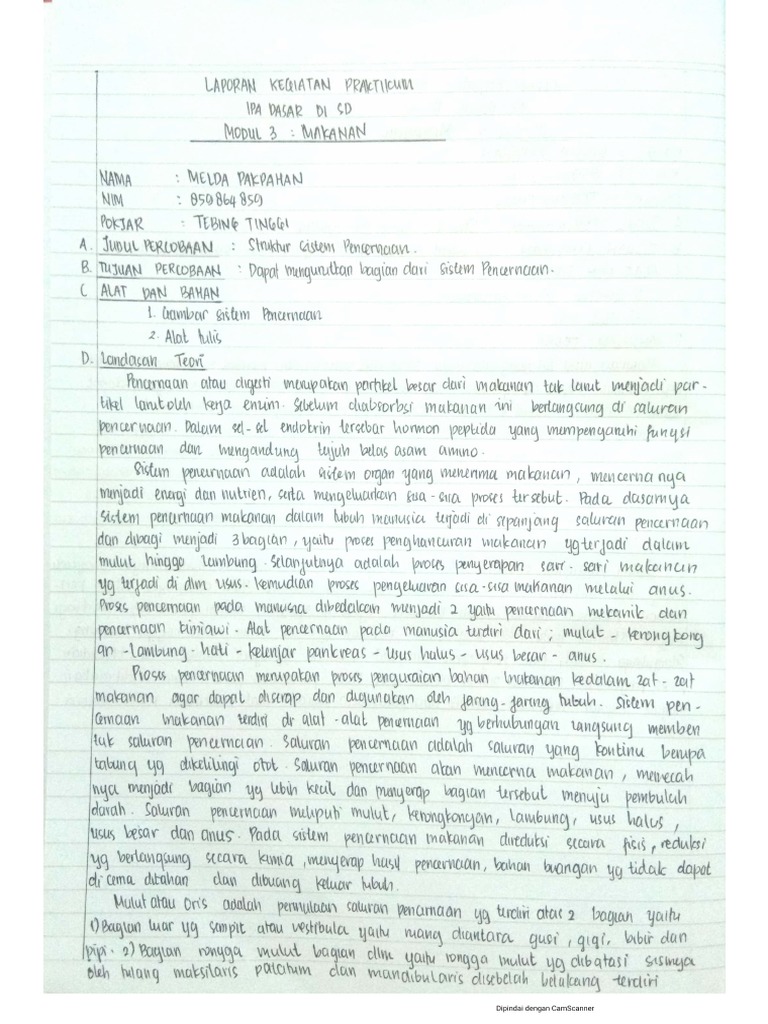 LAPORAN KEGIATAN PRAKTIKUM
IPA DASAR DI SD
MODUL 3 : MAKANAN
NAMA : MELDA PAKPAHAN
NIM : 859864859
POKJAR : TEBING TINGGI
A. JUDUL PERCOBAAN : Struktur Sistem Pencernaan.
B. TUJUAN PERCOBAAN : Dapat mengurutkan bagian dari Sistem Pencernaan.
C ALAT DAN BAHAN
1. Gambar Sistem Pencernaan
2. Alat tulis
D. Landasan Teori
Pencernaan atau digesti merupakan partikel besar dari makanan tak larut menjadi par-
tikel larut oleh kerja enzim. Sebelum diabsorbsi makanan ini berlangsung di saluran
pencernaan. Dalam sel-sel endokrin tersebar hormon peptida yang mempengaruhi fungsi
pencernaan dan mengandung tujuh belas asam amino.
Sistem pencernaan adalah sistem organ yang menerima makanan, mencerna nya
menjadi energi dan nutrien, serta mengeluarkan sisa-sisa proses tersebut. Pada dasarnya
sistem pencernaan makanan dalam tubuh manusia terjadi di sepanjang saluran pencernaan
dan dibagi menjadi 3 bagian, yaitu proses penghancuran makanan yg terjadi dalam
mulut hinggo lambung. Selanjutnya adalah proses penyerapan sari-sari makanan
yg terjadi di dlm usus. Kemudian proses pengeluaran sisa-sisa makanan melalui anus.
Proses pencernaan pada manusia dibedakan menjadi 2 yaitu pencernaan mekanik dan
pencernaan kimiawi. Alat pencernaan pada manusia terdiri dari ; mulut - kerongkong
an - lambung - hati - kelenjar pankreas - usus halus - usus besar - anus.
Proses pencernaan merupakan proses penguraian bahan makanan kedalam zat-zat
makanan agar dapat diserap dan digunakan oleh jaring-jaring tubuh. Sistem pen-
cernaan makanan terdiri dr alat-alat pencernaan yg berhubungan langsung memben
tuk saluran pencernaan. Saluran pencernaan adalah saluran yang kontinu berupa
tabung yg dikelilingi otot. Saluran pencernaan akan mencerna makanan, memecah
nya menjadi bagian yg lebih kecil dan menyerap bagian tersebut menuju pembuluh
darah. Saluran pencernaan meliputi mulut, kerongkongan, lambung, usus halus,
usus besar dan anus. Pada sistem pencernaan makanan direduksi secara fisis, reduksi
yg berlangsung secara kimia, menyerap hasil pencernaan, bahan buangan yg tidak dapat
di cerna ditahan dan dibuang keluar tubuh.
Mulut atau Oris adalah permulaan saluran pencernaan yg terdiri atas 2 bagian yaitu
1) Bagian luar yg sempit atau vestibula yaitu ruang diantara gusi, gigi, bibir dan
pipi. 2) Bagian rongga mulut bagian dlm yaitu rongga mulut yg dibatasi sisinya
oleh tulang maksilaris palatum dan mandibularis disebelah belakang terdiri
Dipindai dengan CamScanner